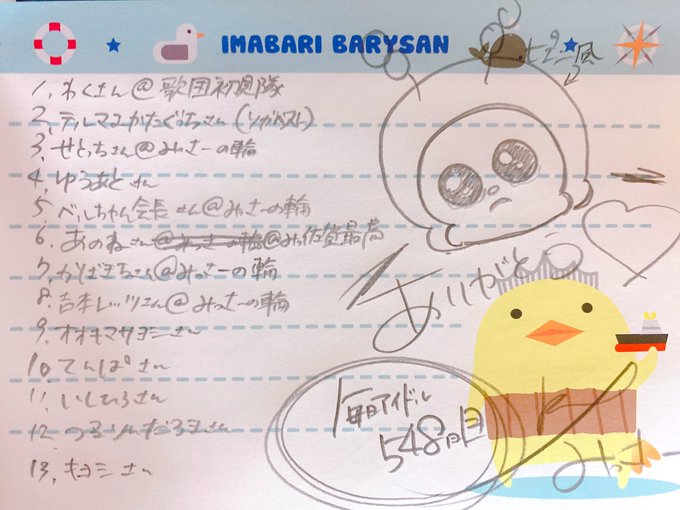 IMABARI BARYSAN
1, わくさん@歌団初見隊
2, テルマエかたぐっちさん(ソガベスト)
3, せとっちさん@みっさーの輪
4, ゆうあとさん
5, べルちゃん会長さん@みっさーの輪
6, あのねさん@みっ佐賀最高
7, かりさきちさん@みっさーの輪
8, 吉本レッツさん@みっさーの輪
9, オオキマサヨシさん
10, てんぱさん
11, いしひろさん
12, つるりんだろヲさん
13, キヨシさん
ありがと
毎日アイドル
548日目
みっさー